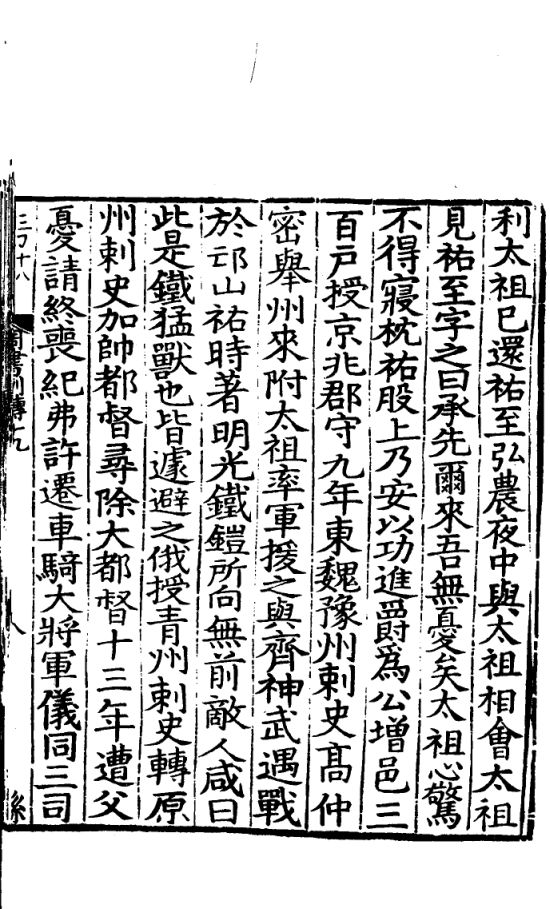 利太祖已還祐至弘農夜中與太祖相會太祖
見祐至字之曰承先爾來吾無憂矣太祖心驚
不得寢枕祐股上乃安以功進爵為公增邑三
百戶授京兆郡守九年東魏豫州刺史高仲
密舉州來附太祖率軍援之與齊神武遇戰
於邙山祐時著明光鐵鎧所向無前敵人咸曰
此是鐵猛獸也皆遽避之俄授青州刺史轉原
州刺史加帥都督尋除大都督十三年遭父
憂請終喪紀弗許遷車騎大將軍儀同三司